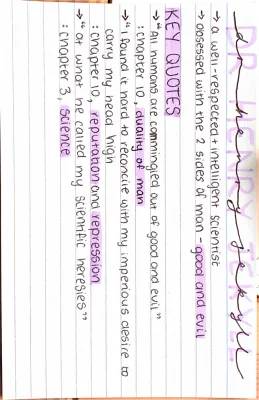 DR HENRY JEKYLL
dr henry jekyll
→ a well-respected + intelligent scientist
→ obsessed with the 2 sides of man - good and evil
KEY QUOTES
→ "All humans are commingled out of good and evil"
: chapter 10, duality of man
→ "I found it hard to reconcile with my imperious desire to
carry my head high
: chapter 10, reputation and repression
→ " at what he called my scientific heresies"
: chapter 3, science